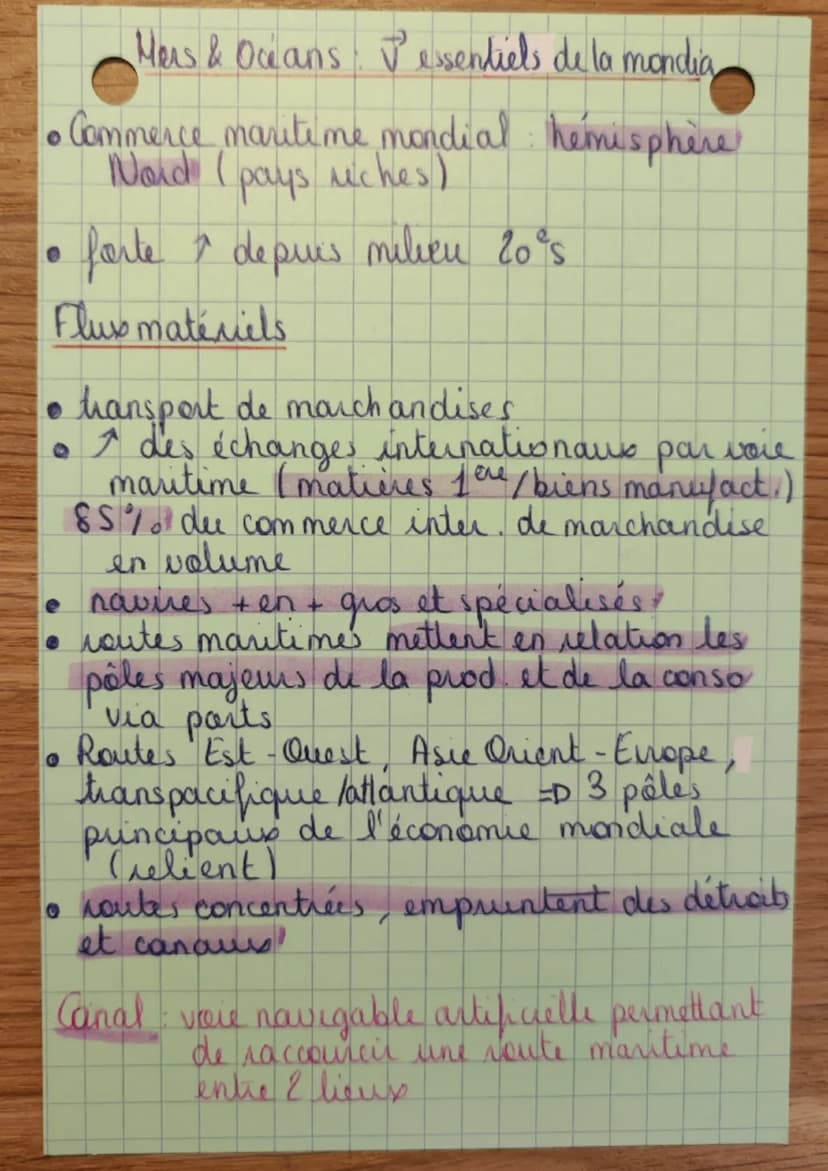 Mers & Océans : V⃗ essentiels de la mondia
• Commerce maritime mondial : hémisphère
Nord (pays riches)
• forte ↑ depuis milieu 20ᵉs
Flux matériels
• transport de marchandises
• ↑ des échanges internationaux par voie
maritime (matières 1ère/biens manufact.)
85% du commerce inter. de marchandise
en volume
• navires + en + gros et spécialisés
• routes maritimes mettent en relation les
pôles majeurs de la prod. et de la conso
via ports
• Routes Est-Ouest, Asie Orient-Europe,
transpacifique/atlantique => 3 pôles
principaux de l'économie mondiale
(relient)
• routes concentrées, empruntent des détroits
et canaux
Canal : voie navigable artificielle permettant
de raccourcir une route maritime
entre 2 lieux